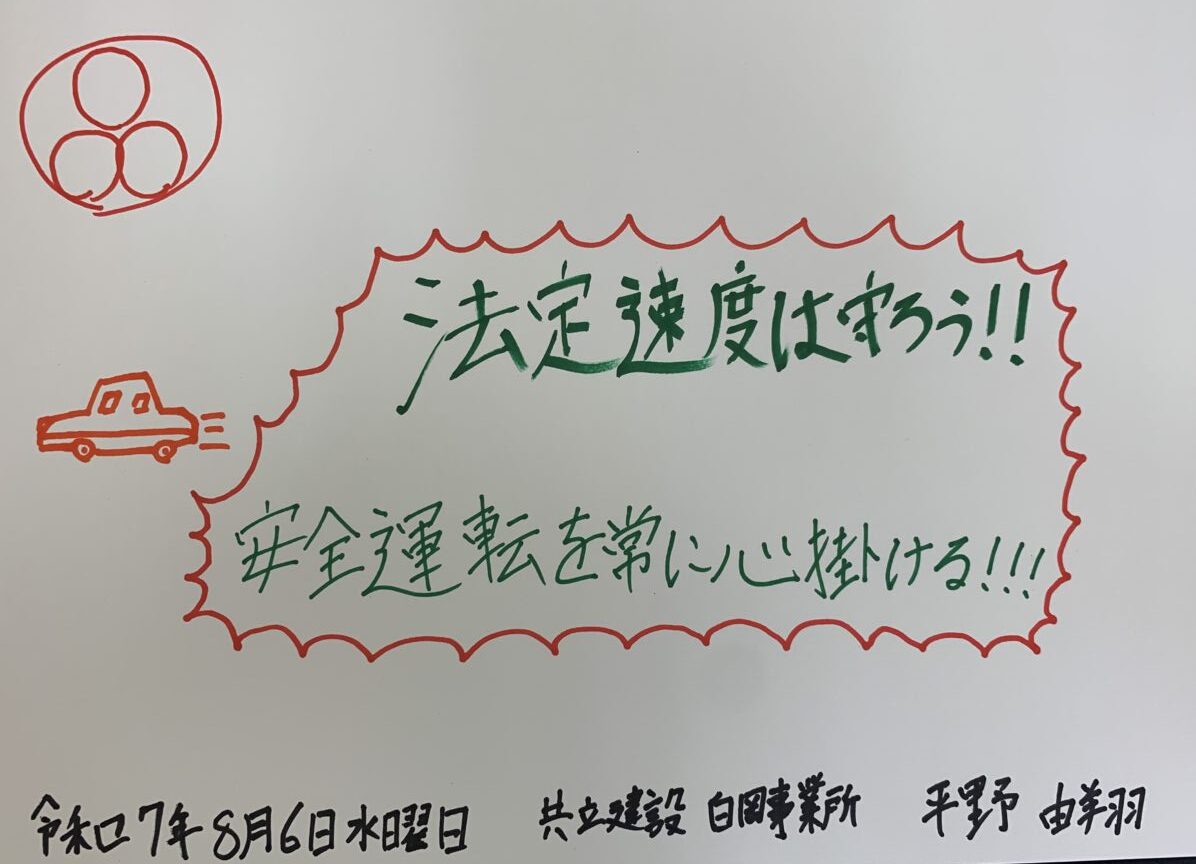 法定速度は守ろう!!
安全運転を常に心掛ける!!!
令和7年8月6日水曜日 共立建設 白岡事業所 平野 由羽